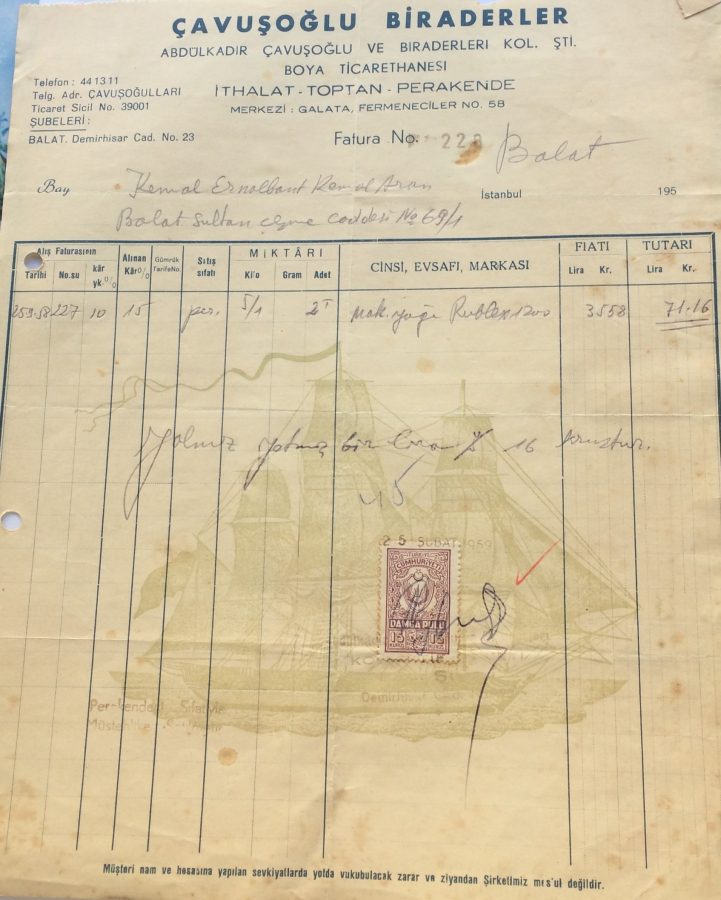 ÇAVUŞOĞLU BİRADERLER
ABDÜLKADİR ÇAVUŞOĞLU VE BİRADERLERİ KOL. ŞTİ.
BOYA TİCARETHANESİ
İTHALAT - TOPTAN - PERAKENDE
MERKEZİ : GALATA, FERMENECİLER NO. 58
Telefon : 44 13 11
Telg. Adr. ÇAVUŞOĞULLARI
Ticaret Sicil No. 39001
ŞUBELERİ :
BALAT. Demirhisar Cad. No. 23
Fatura No. 228 Balat
Bay Kemal Ernalbant Kemal Aran
İstanbul 195
Balat Sultan çeşme caddesi No 69/1
Alış Faturasının Alınan Kâr % Gümrük Tarife No. Satış sıfatı MİKTÂRI CİNSİ, EVSAFI, MARKASI FİATI TUTARI
Tarihi No.su kâr yk. % Kilo Gram Adet Lira Kr. Lira Kr.
227 10 15 per. 5/1 2 Mak. yağı Rublex 1200 3558 71.16
Yalnız yetmiş bir lira % 16 kruştur.
25 ŞUBAT 1959
TÜRKİYE
CUMHURİYETİ
DAMGA PULU
15 15
Demirhisar
Perakendeci Sıfatiyle
Müşteri nam ve hesasına yapılan sevkiyallarda yolda vukubulacak zarar ve ziyandan Şirketimiz mes'ul değildir.